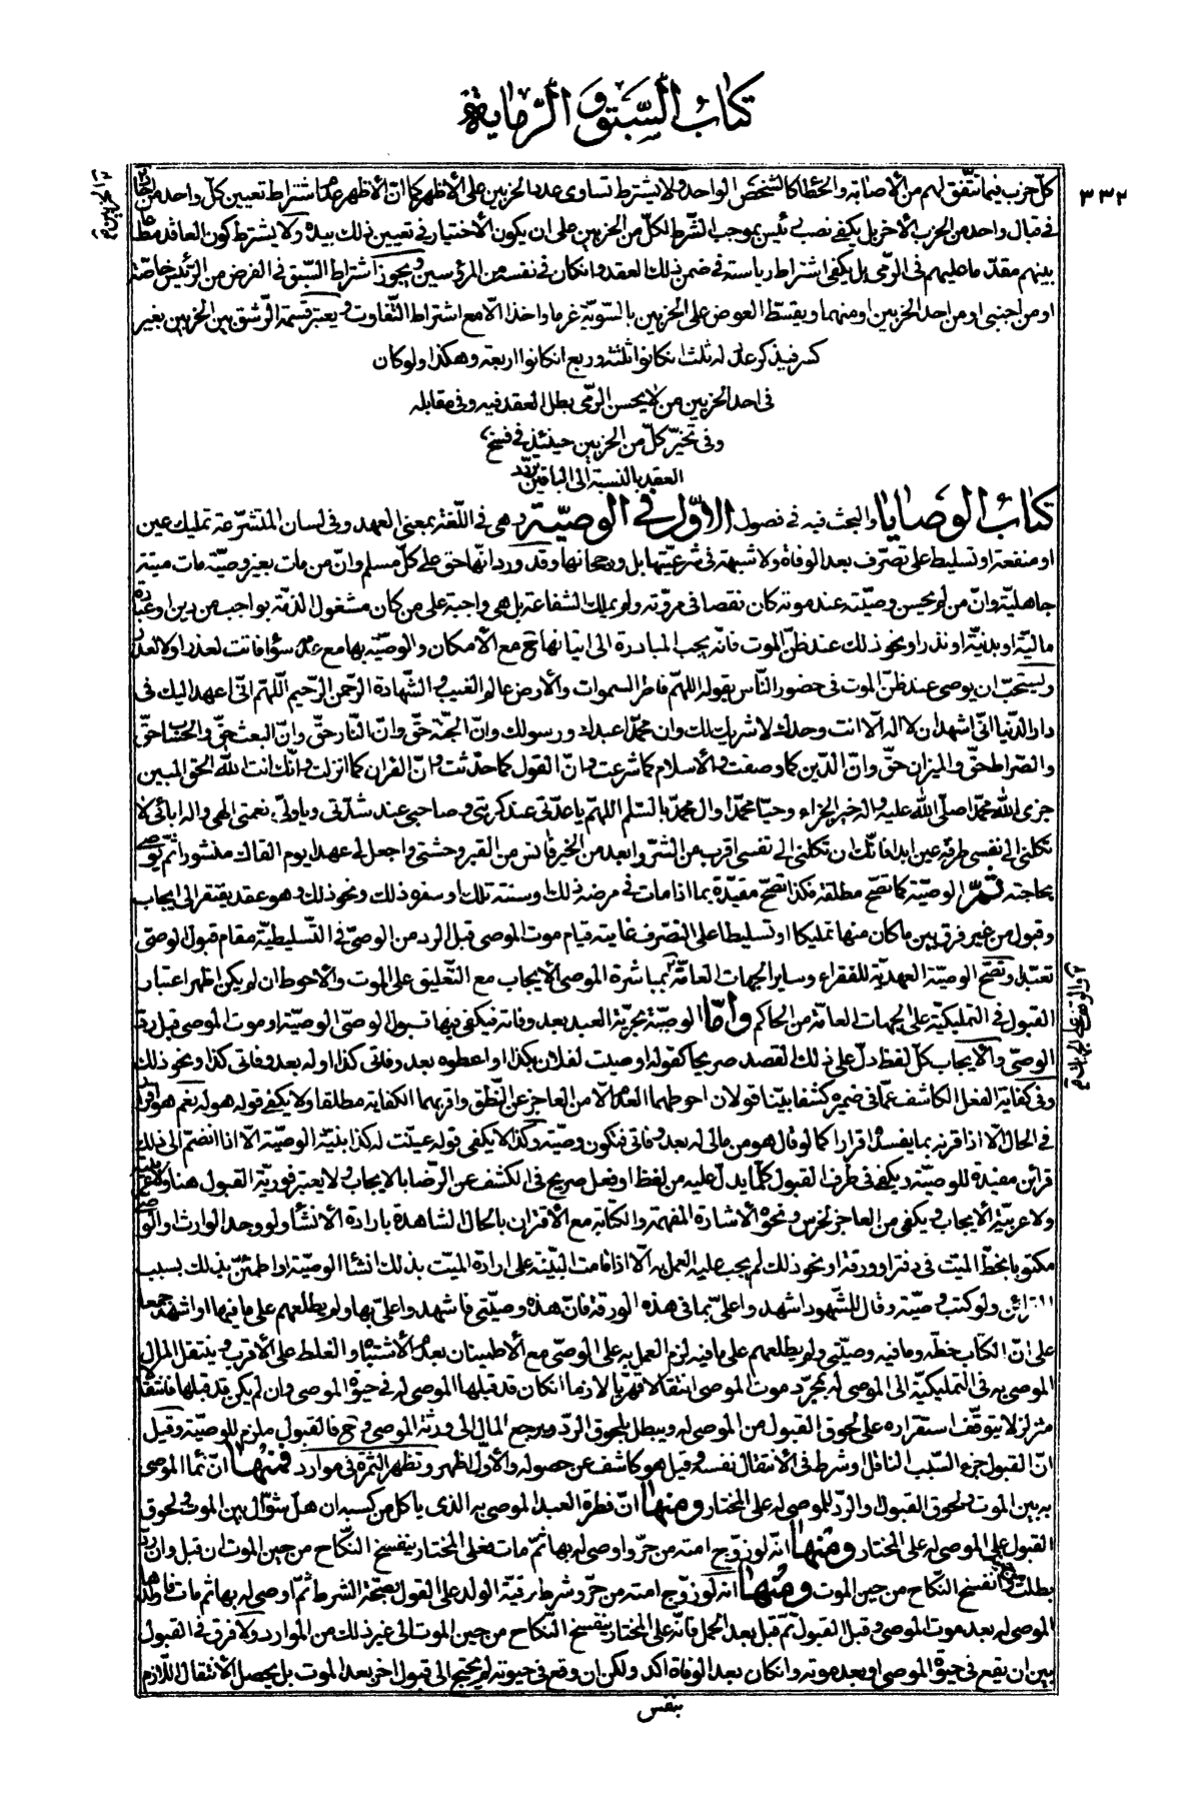 كتاب السبق والرماية
٣٣٢
كلّ حزب فيما يتّفق لهم من الأصابة والخطا كالشخص الواحد ولا يشترط تساوى عدد الحزبين على الأظهر كما انّ الأظهر عدم اشتراط تعيين كلّ واحد من
فى قبال واحد من الحزب الأخر بل يكفى نصب رئيس بموجب الشّرط لكلّ من الحزبين على ان يكون الأختيار فى تعيين ذلك بيده ولا يشترط كون العاقد
بينهم مقدّما عليهم فى الرّمى بل يكفى اشتراط رياسته فى ضمن ذلك العقد وانكان فى نفسه من المرؤسين ويجوز اشتراط السّبق فى الفرض من الرّئيس خاصّة
او من اجنبى او من احد الحزبين او منهما ويقسّط العوض على الحزبين بالسّويّة غرما واخذا الّا مع اشتراط التّفاوت ويعتبر قسمة الرّشق بين الحزبين بغير
كسر فيذكر عدد له ثلث انكانوا ثلثة وربع انكانوا اربعة وهكذا ولو كان
فى احد الحزبين من لا يحسن الرّمى بطل العقد فيه وفى مقابله
وفى تخيّر كلّ من الحزبين حينئذ فى فسخ
العقد بالنسبة الى الباقين تردّد
كتاب الوصايا والبحث فيه فى فصول الأوّل فى الوصيّة وهى فى اللّغة بمعنى العهد وفى لسان المتشرّعة تمليك عين
او منفعة او تسليط على تصرّف بعد الوفاة ولا شبهة فى شرعيّتها بل ورجحانها وقد ورد انّها حق على كلّ مسلم وانّ من مات بغير وصيّة مات ميتة
جاهليّة وانّ من لم يحسن وصيّته عند موته كان نقصا فى مروّته ولم يملك الشفاعة بل هى واجبة على من كان مشغول الذمّة بواجب من دين او عبادة
ماليّة او بدنيّة او نذر او نحو ذلك عند ظنّ الموت فانّه يجب المبادرة الى اتيانها ح مع الأمكان والوصيّة بها مع عدمه سواء فاتت لعذر او لا لعذر
ويستحبّ ان يوصى عند ظنّ الموت فى حضور النّاس بقوله اللهمّ فاطر السموات والأرض عالم الغيب والشهادة الرّحمن الرّحيم اللّهمّ انّى اعهد اليك فى
دار الدّنيا انّى اشهد ان لا اله الّا انت وحدك لا شريك لك وان محمّدا عبدك ورسولك وانّ الجنّة حقّ وانّ النّار حقّ وانّ البعث حقّ والحساب حقّ
والصّراط حقّ والميزان حقّ وانّ الدّين كما وصفت والأسلام كما شرعت وانّ القول كما حدّثت وانّ القران كما انزلت وانّك انت الله الحق المبين
جزى الله محمّدا صلّى الله عليه واله خير الجزاء وحيّا محمّدا وال محمّد بالسّلم اللّهمّ يا عدّتى عند كربتى وصاحبى عند شدّتى ويا وليّى نعمتى الهى واله ابائى لا
تكلنى الى نفسى طرفة عين ابدا فانّك ان تكلنى الى نفسى اقرب من الشّر وابعد من الخير فانس من القبر وحشتى واجعل لى عهدا يوم القاك منشورا ثم يوصى
بحاجته ثمّ الوصيّة كما تصحّ مطلقة فكذا تصحّ مقيّدة بما اذا مات فى مرضه ذلك او سنته تلك او سفره ذلك ونحو ذلك وهو عقد يفتقر الى ايجاب
وقبول من غير فرق بين ما كان منها تمليكا او تسليطا على التصرّف غايته قيام موت الموصى قبل الرد من الوصىّ فى التّسليطيّة مقام قبول الوصىّ
وتصحّ الوصيّة العهديّة للفقراء وساير الجهات العامّة بمباشرة الموصى الأيجاب مع التّعليق على الموت والأحوط ان لم يكن اظهر اعتبار
القبول فى التمليكيّة على الجهات العامّة من الحاكم وامّا الوصيّة بحريّة العبد بعد وفاته فيكفى فيها قبول الوصىّ الوصيّة او موت الموصى قبل ردّ
الوصىّ والأيجاب كلّ لفظ دلّ على ذلك القصد صريحا كقوله اوصيت لفلان بكذا او اعطوه بعد وفاتى كذا او له بعد وفاتى كذا ونحو ذلك
وفى كفاية الفعل الكاشف عمّا فى ضميره كشفا بيّنا قولان احوطهما العدم الّا من العاجز عن النّطق واقربهما الكفاية مطلقا ولا يكفى قوله هو له نعم هو اقرار
فى الحال الّا اذا قرنه بما يفسد اقرارا كما لو قال هو من مالى له بعد وفاتى فتكون وصيّة وكذا لا يكفى قوله عيّنت له كذا بنيّة الوصيّة الّا اذا انضمّ الى ذلك
قرائن مفيدة للوصيّة ويكفى فى طرف القبول كلّما يدلّ عليه من لفظ او فعل صريح فى الكشف عن الرّضا بالأيجاب ولا يعتبر فوريّة القبول هنا
ولا عربيّة الأيجاب ويكفى من العاجز لخرس ونحوه الأشارة المفهمة والكتابة مع الأقتران بالحال الشاهدة بارادة الأنشاء ولو وجد الوارث او الوصىّ
مكتوبا بخطّ الميّت فى دفتر او ورقة او نحو ذلك لم يجب عليه العمل به الّا اذا قامت البيّنة على ارادة الميّت بذلك انشاء الوصيّة او اطمئنّ بذلك بسبب
القرائن ولو كتب وصيّة وقال للشّهود اشهدوا علىّ بما فى هذه الورقة فانّ هذه وصيّتى فاشهدوا علىّ بها ولم يطلعهم على ما فيها او اشهد جمعا
على انّ الكتاب خطّه وما فيه وصيّتى ولم يطلعهم على ما فيه لزم العمل به على الوصىّ مع الأطمينان بعدم الأشتباه والغلط على الأقرب وينتقل المال
الموصى به فى التمليكيّة الى الموصى له بمجرّد موت الموصى انتقالا قهريّا لازما انكان قد قبلها الموصى له فى حيوة الموصى وان لم يكن قد قبلها فانتقالا
متزلزلا يتوقّف استقراره على لحوق القبول من الموصى له ويبطل بلحوق الردّ ويرجع المال الى ورثة الموصى وح فالقبول ملزم للوصيّة وقيل
انّ القبول جزء السّبب الناقل او شرط فى الأنتقال نفسه وقيل هو كاشف عن حصوله والأوّل اظهر وتظهر الثمرة فى موارد فمنها انّ نماء الموصى
به بين الموت ولحوق القبول والردّ للموصى له على المختار ومنها انّ فطرة العبد الموصى به الذى ياكل من كسبه ان هلّ شوّال بين الموت ولحوق
القبول على الموصى له على المختار ومنها انّه لو زوّج امته من حرّ واوصى له بها ثمّ مات فعلى المختار ينفسخ النّكاح من حين الموت ان قبل وان ردّ
بطلت وانفسخ النّكاح من حين الموت ومنها انّه لو زوّج امته من حرّ وشرط رقيّة الولد على القول بصحّة الشرط ثمّ اوصى له بها ثم مات فاولدها
الموصى له بعد موت الموصى وقبل القبول ثمّ قبل بعد الحمل فانّه على المختار ينفسخ النّكاح من حين الموت الى غير ذلك من الموارد ولا فرق فى القبول
بين ان يقع فى حيوة الموصى او بعد موته وانكان بعد الوفاة اكد ولكن ان وقع فى حيوته لم يحتج الى قبول اخر بعد الموت بل يحصل الأنتقال اللازم
بنفس